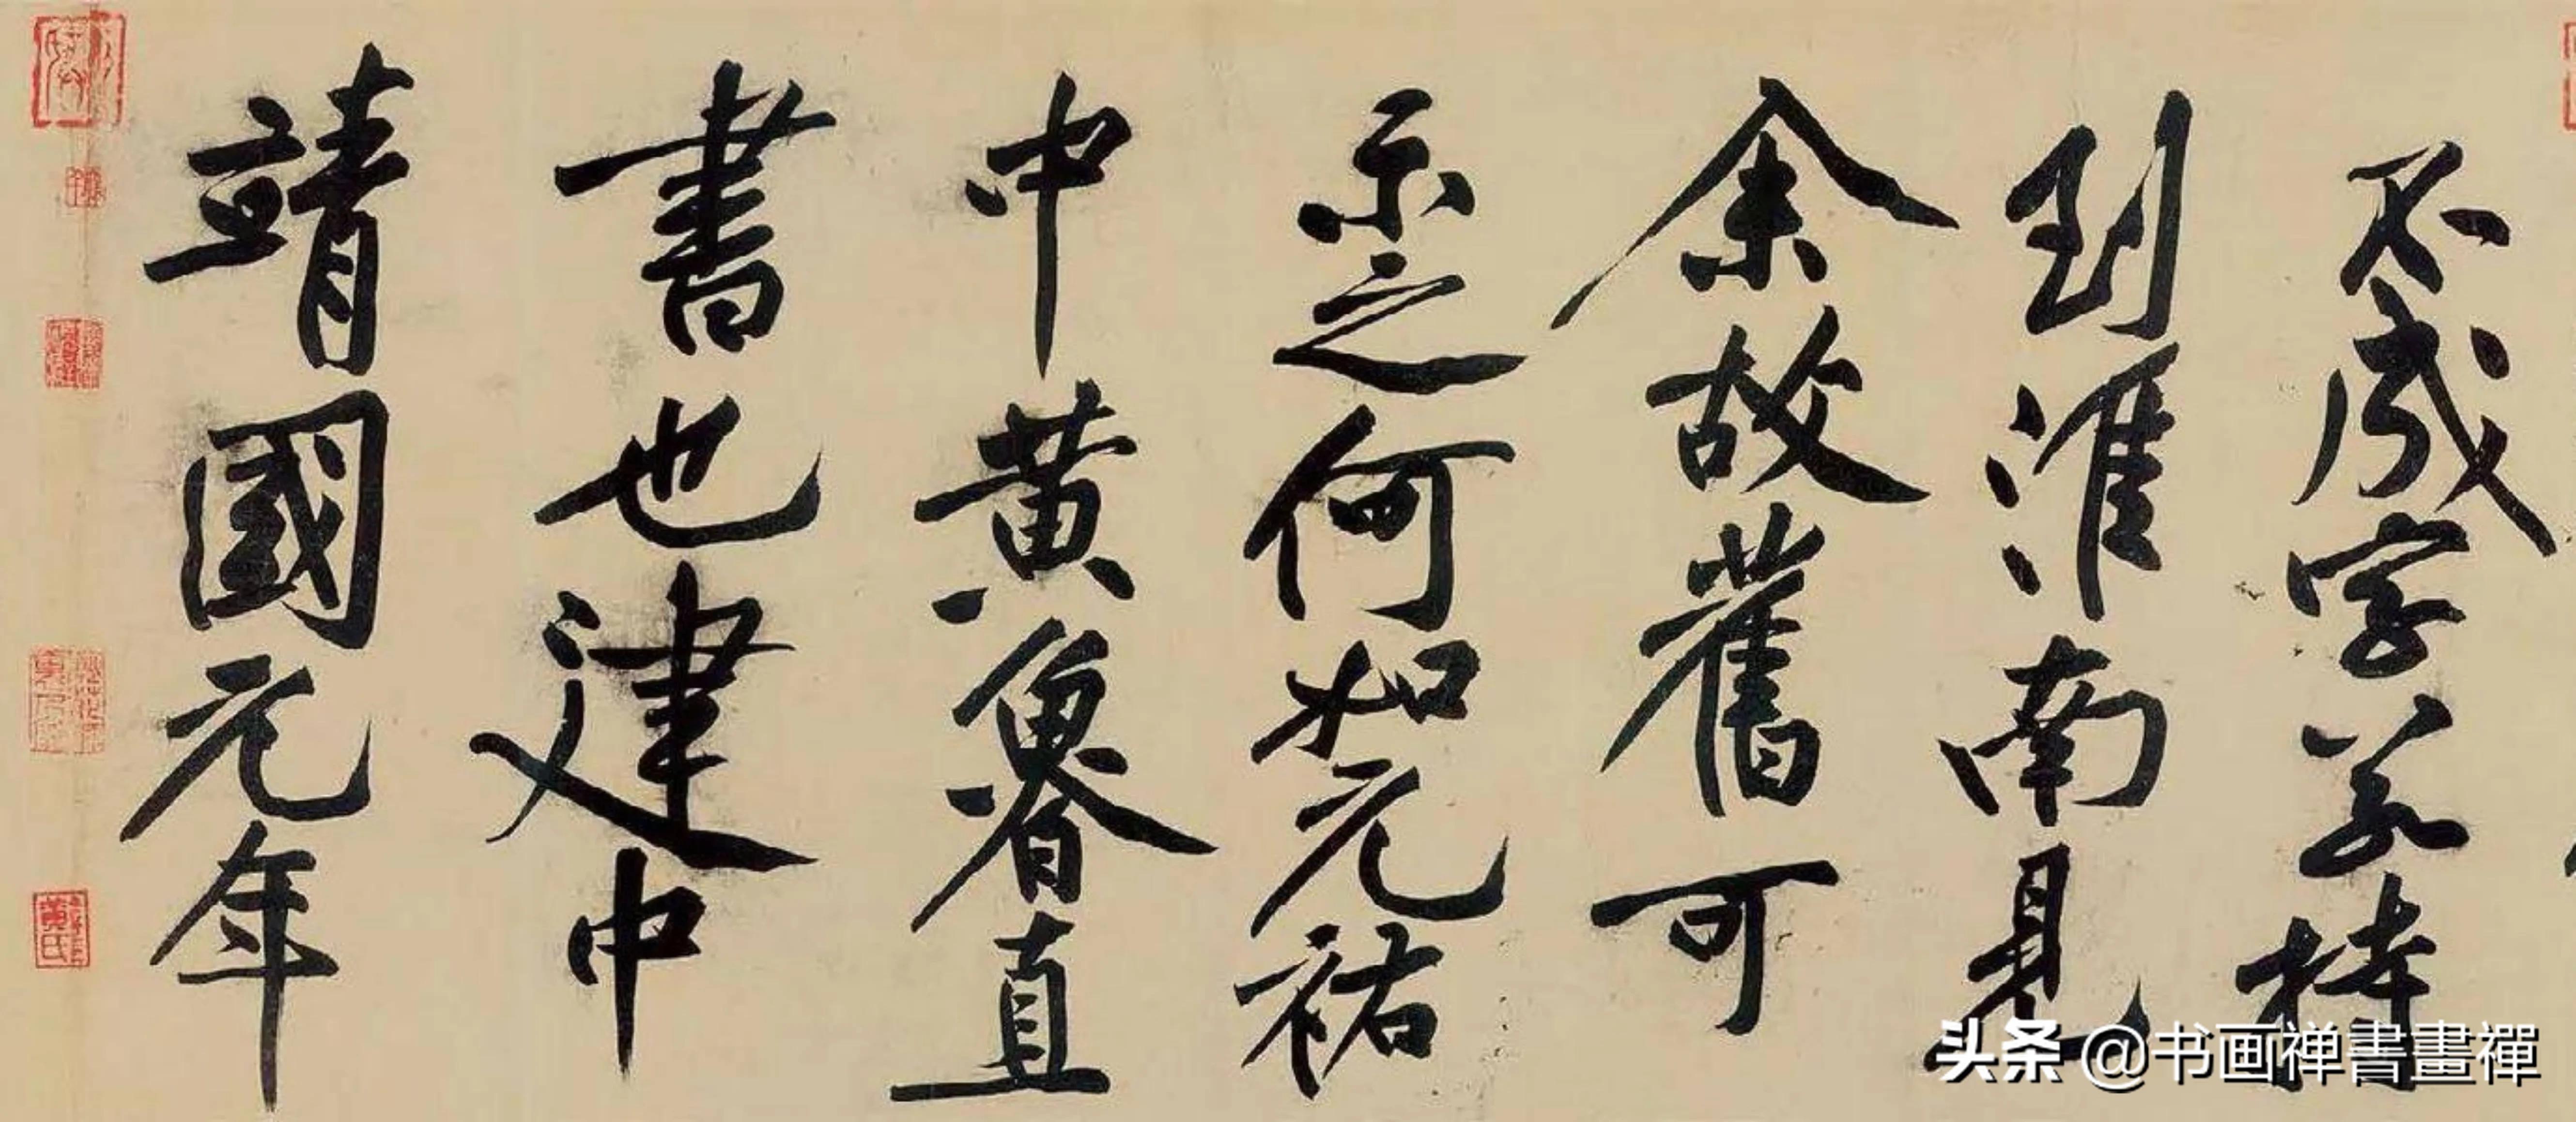 不成字若持
到淮南見
余故舊可
示之何如元祐
中黄魯直
書也建中
靖國元年
黄氏
头条 @书画禅書畫禪